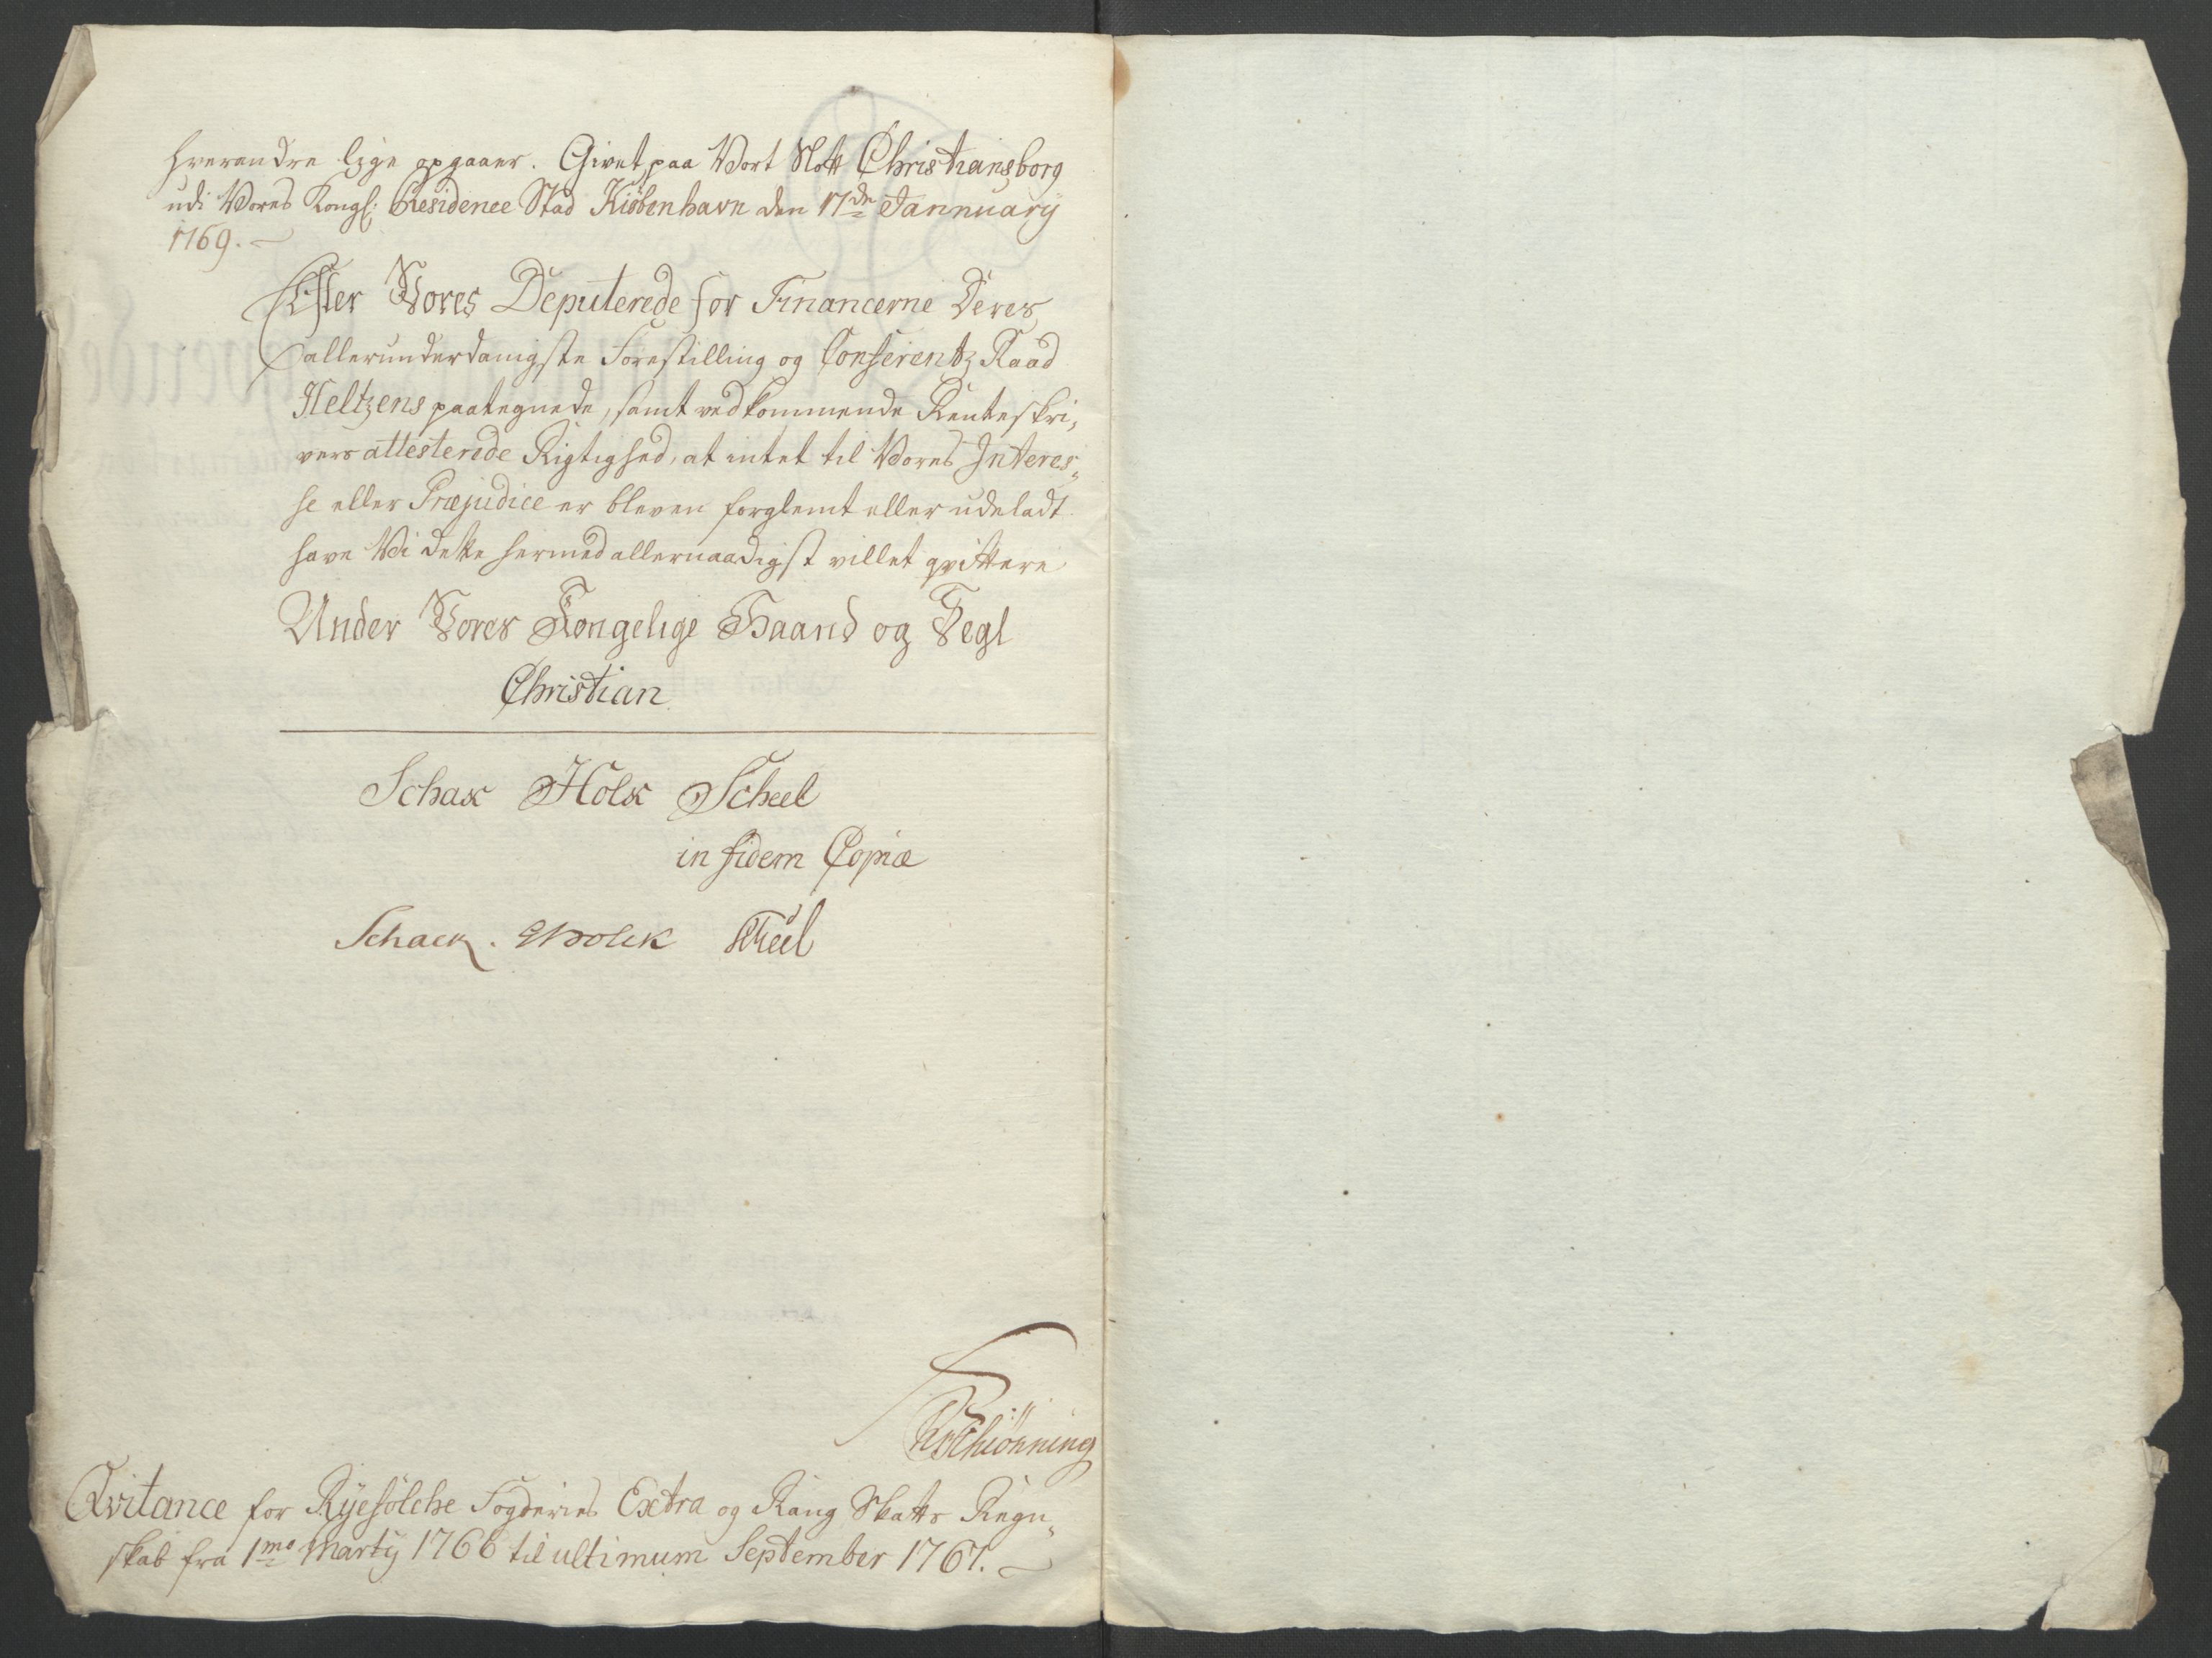 hverandre lige opgaaer. Givet paa Vort Slott Christiansborg
udi Vores Kongl: Residence Stad Kiöbenhavn den 17de Jannuarÿ
1769.
Efter Vores Deputerede for Financerne Deres
allerunderdanigste Forestilling og Conferentz Raad
Heltzens paategnede, samt vedkommende Renteskri,
vers attesterede Rigtighed, at intet til Vores Interes„
se eller Præjudice er bleven forglemt eller udeladt
have Vi dette hermed allernaadigst villet qvittere
Under Vores Kongelige Haand og Segl
Christian
Schak Holk Scheel
in fidem Copiæ
Schack. Holck Scheel
Schiönning
Qvitance for Rÿefölche Fogderies Extra og Rang Skatts Regn„
skab fra 1mo Martÿ 1766 til ultimum September 1767.